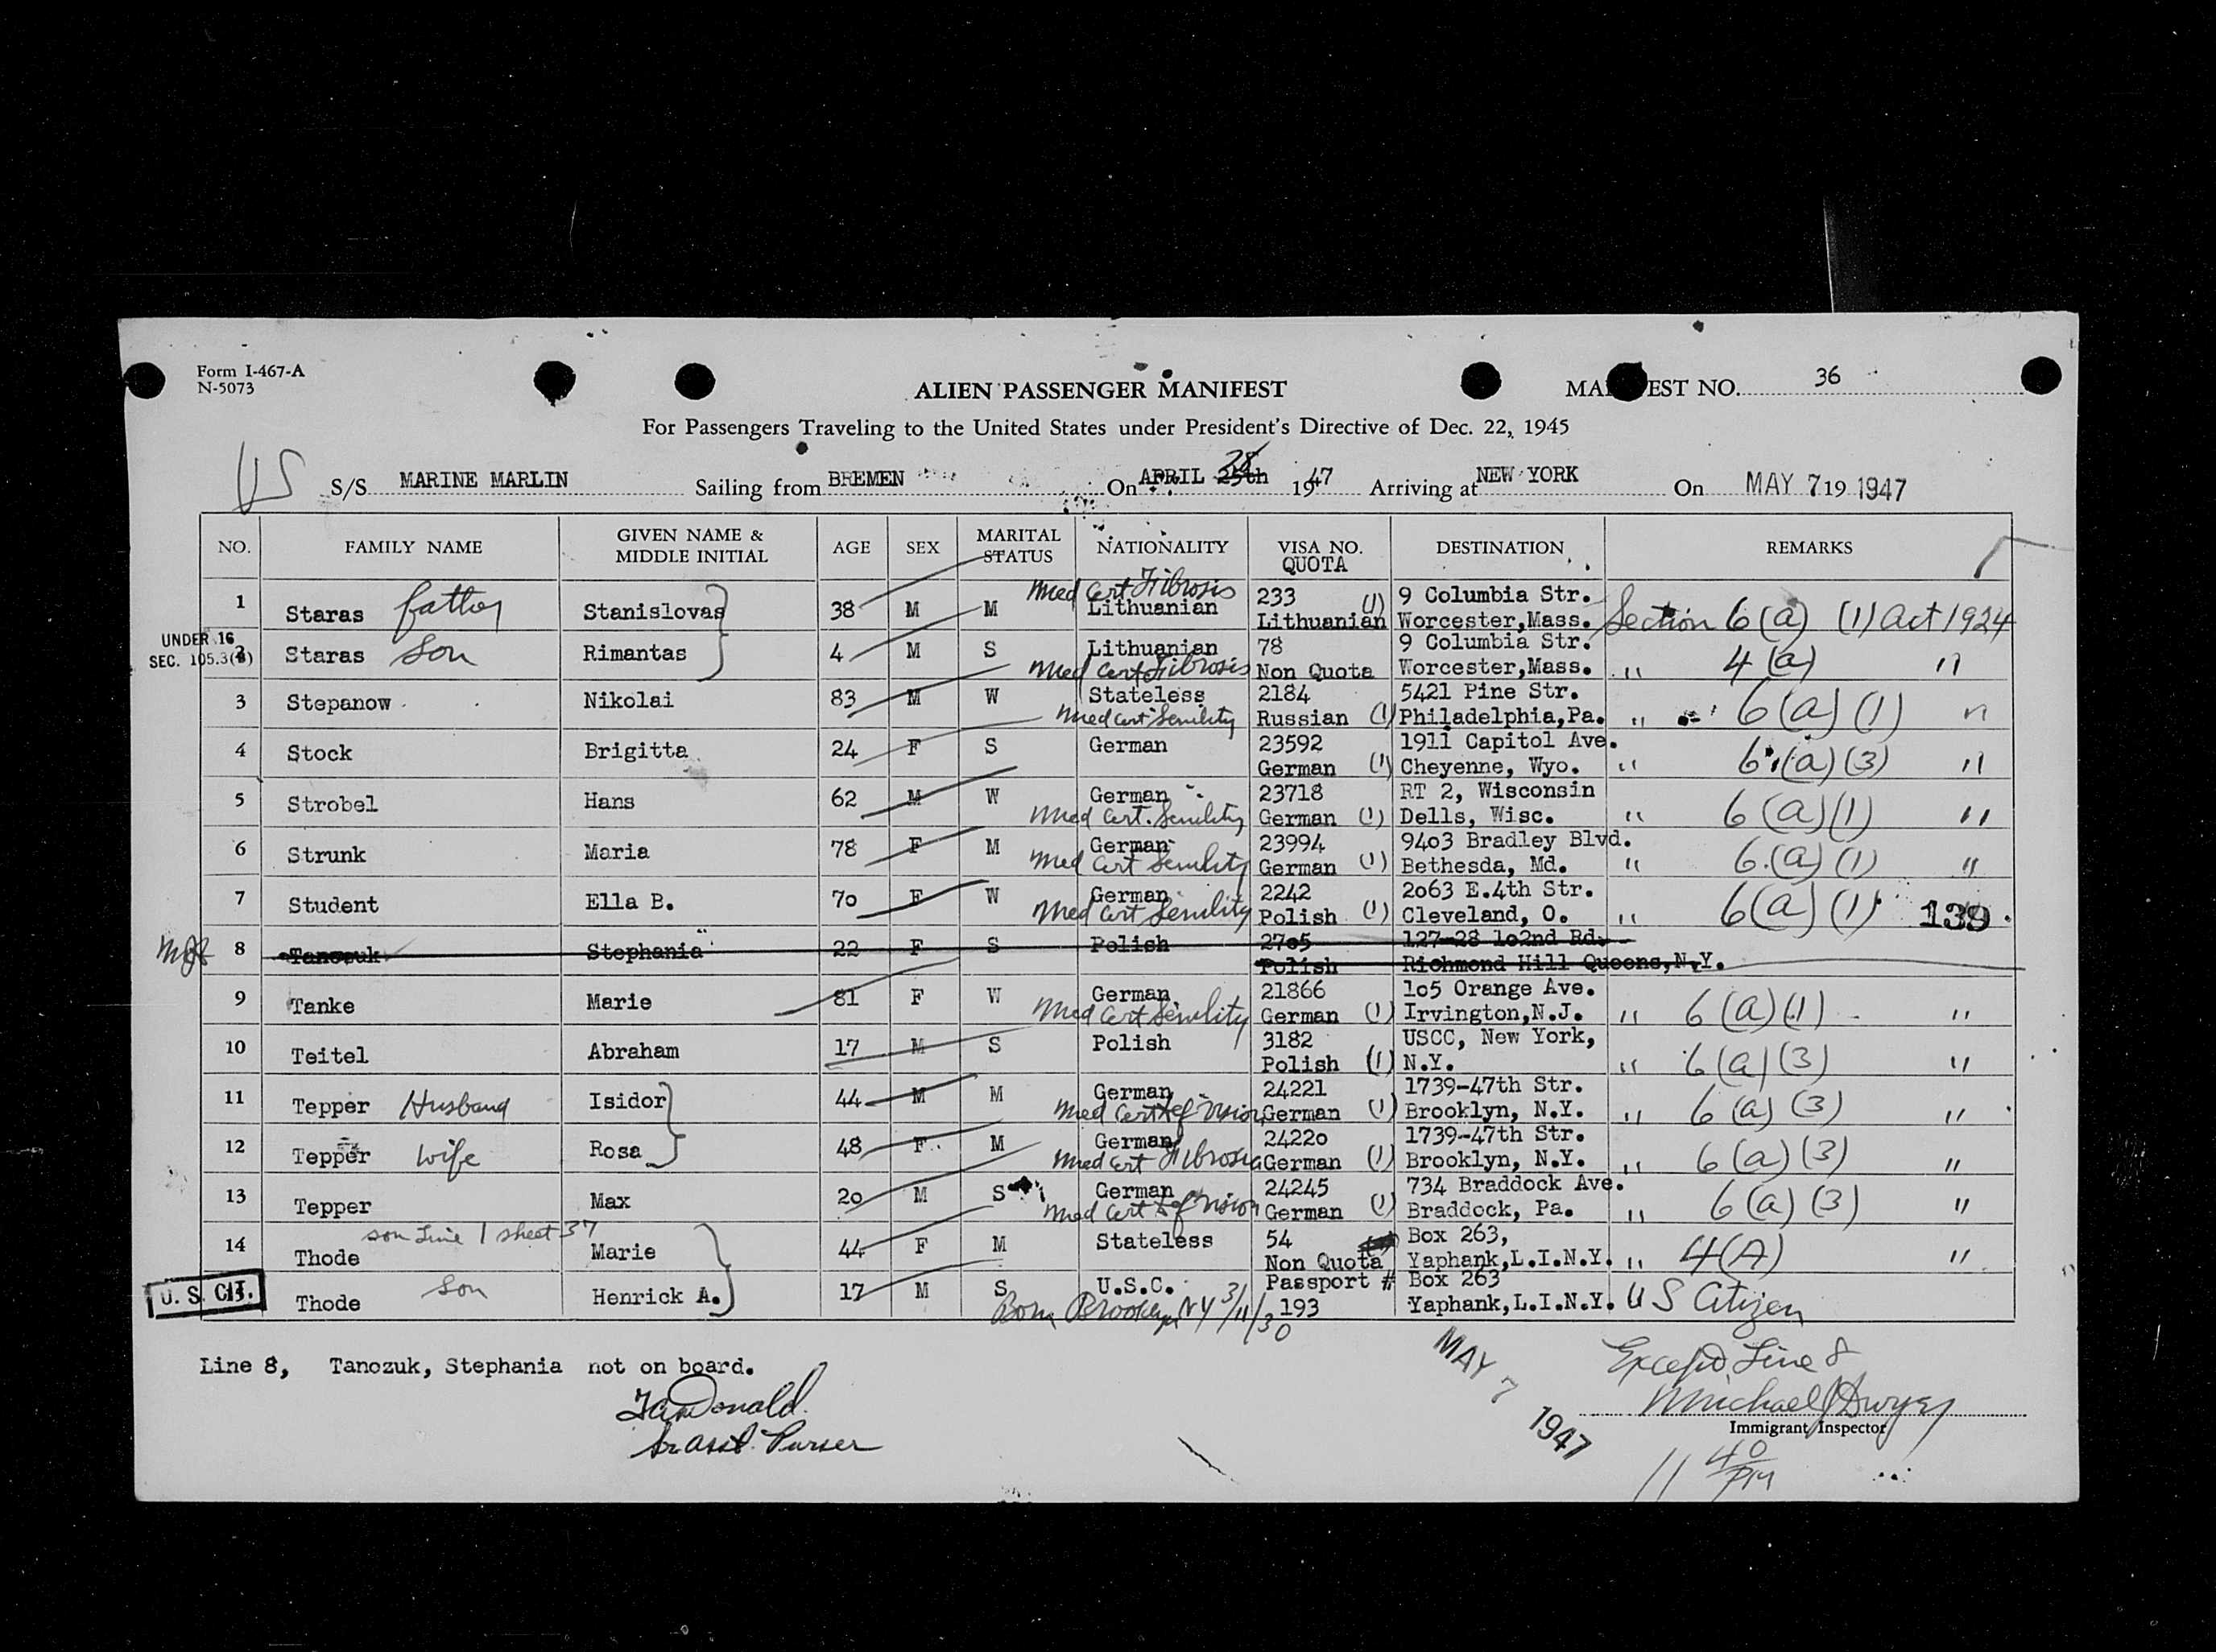 Form I-467-A
N-5073
ALIEN PASSENGER MANIFEST
MA EST NO. 36
For Passengers Traveling to the United States under President's Directive of Dec. 22, 1945
US
S/S MARINE MARLIN Sailing from BREMEN On APRIL 25th 28 1947 Arriving at NEW YORK On MAY 7 19 1947
NO. FAMILY NAME GIVEN NAME & MIDDLE INITIAL AGE SEX MARITAL STATUS NATIONALITY VISA NO. QUOTA DESTINATION REMARKS
Med Cert Fibrosis
1 Staras father Stanislovas 38 M M Lithuanian 233 9 Columbia Str.
(1) Lithuanian Worcester,Mass. Section 6(a) (1) Act 1924
UNDER 16
SEC. 105.3(b)
2 Staras Son Rimantas 4 M S Lithuanian 78 9 Columbia Str.
Non Quota Worcester,Mass. " 4(a) "
Med Cert Fibrosis
3 Stepanow Nikolai 83 M W Stateless 2184 5421 Pine Str.
Med Cert Senility Russian (1) Philadelphia,Pa. " 6(a)(1) "
4 Stock Brigitta 24 F S German 23592 1911 Capitol Ave.
German (1) Cheyenne, Wyo. " 6(a)(3) "
5 Strobel Hans 62 M W German 23718 RT 2, Wisconsin
Med Cert. Senility German (1) Dells, Wisc. " 6(a)(1) "
6 Strunk Maria 78 F M German 23994 9403 Bradley Blvd.
Med Cert Senility German (1) Bethesda, Md. " 6(a)(1) "
7 Student Ella B. 70 F W German 2242 2063 E.4th Str.
Med Cert Senility Polish (1) Cleveland, O. " 6(a)(1) 139
8 Tanozuk Stephania 22 F S Polish 2705 127-28 102nd Rd.
Polish Richmond Hill Queens,N.Y.
9 Tanke Marie 81 F W German 21866 105 Orange Ave.
Med Cert Senility German (1) Irvington,N.J. " 6(a)(1) "
10 Teitel Abraham 17 M S Polish 3182 USCC, New York,
Polish (1) N.Y. " 6(a)(3) "
11 Tepper Husband Isidor 44 M M German 24221 1739-47th Str.
Med Cert Def Vision German (1) Brooklyn, N.Y. " 6(a)(3) "
12 Tepper wife Rosa 48 F. M German 24220 1739-47th Str.
Med Cert Fibrosis German (1) Brooklyn, N.Y. " 6(a)(3) "
13 Tepper Max 20 M S German 24245 734 Braddock Ave.
Med Cert Def Vision German (1) Braddock, Pa. " 6(a)(3) "
son Line 1 sheet 37
14 Thode Marie 44 F M Stateless 54 Box 263,
Non Quota Yaphank,L.I.N.Y. " 4(A) "
U. S. CIT.
Thode Son Henrick A. 17 M S U.S.C. Passport # Box 263
193 Yaphank,L.I.N.Y. U S Citizen
Born Brooklyn NY 3/11/30
Line 8, Tanozuk, Stephania not on board.
MAY 7 1947
Except Line 8
Michael J Dwyer
Immigrant Inspector
Sr. Asst. Purser
11 40 PM